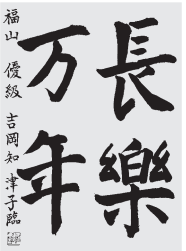 長樂
万年
福山 優級 吉岡知津子臨